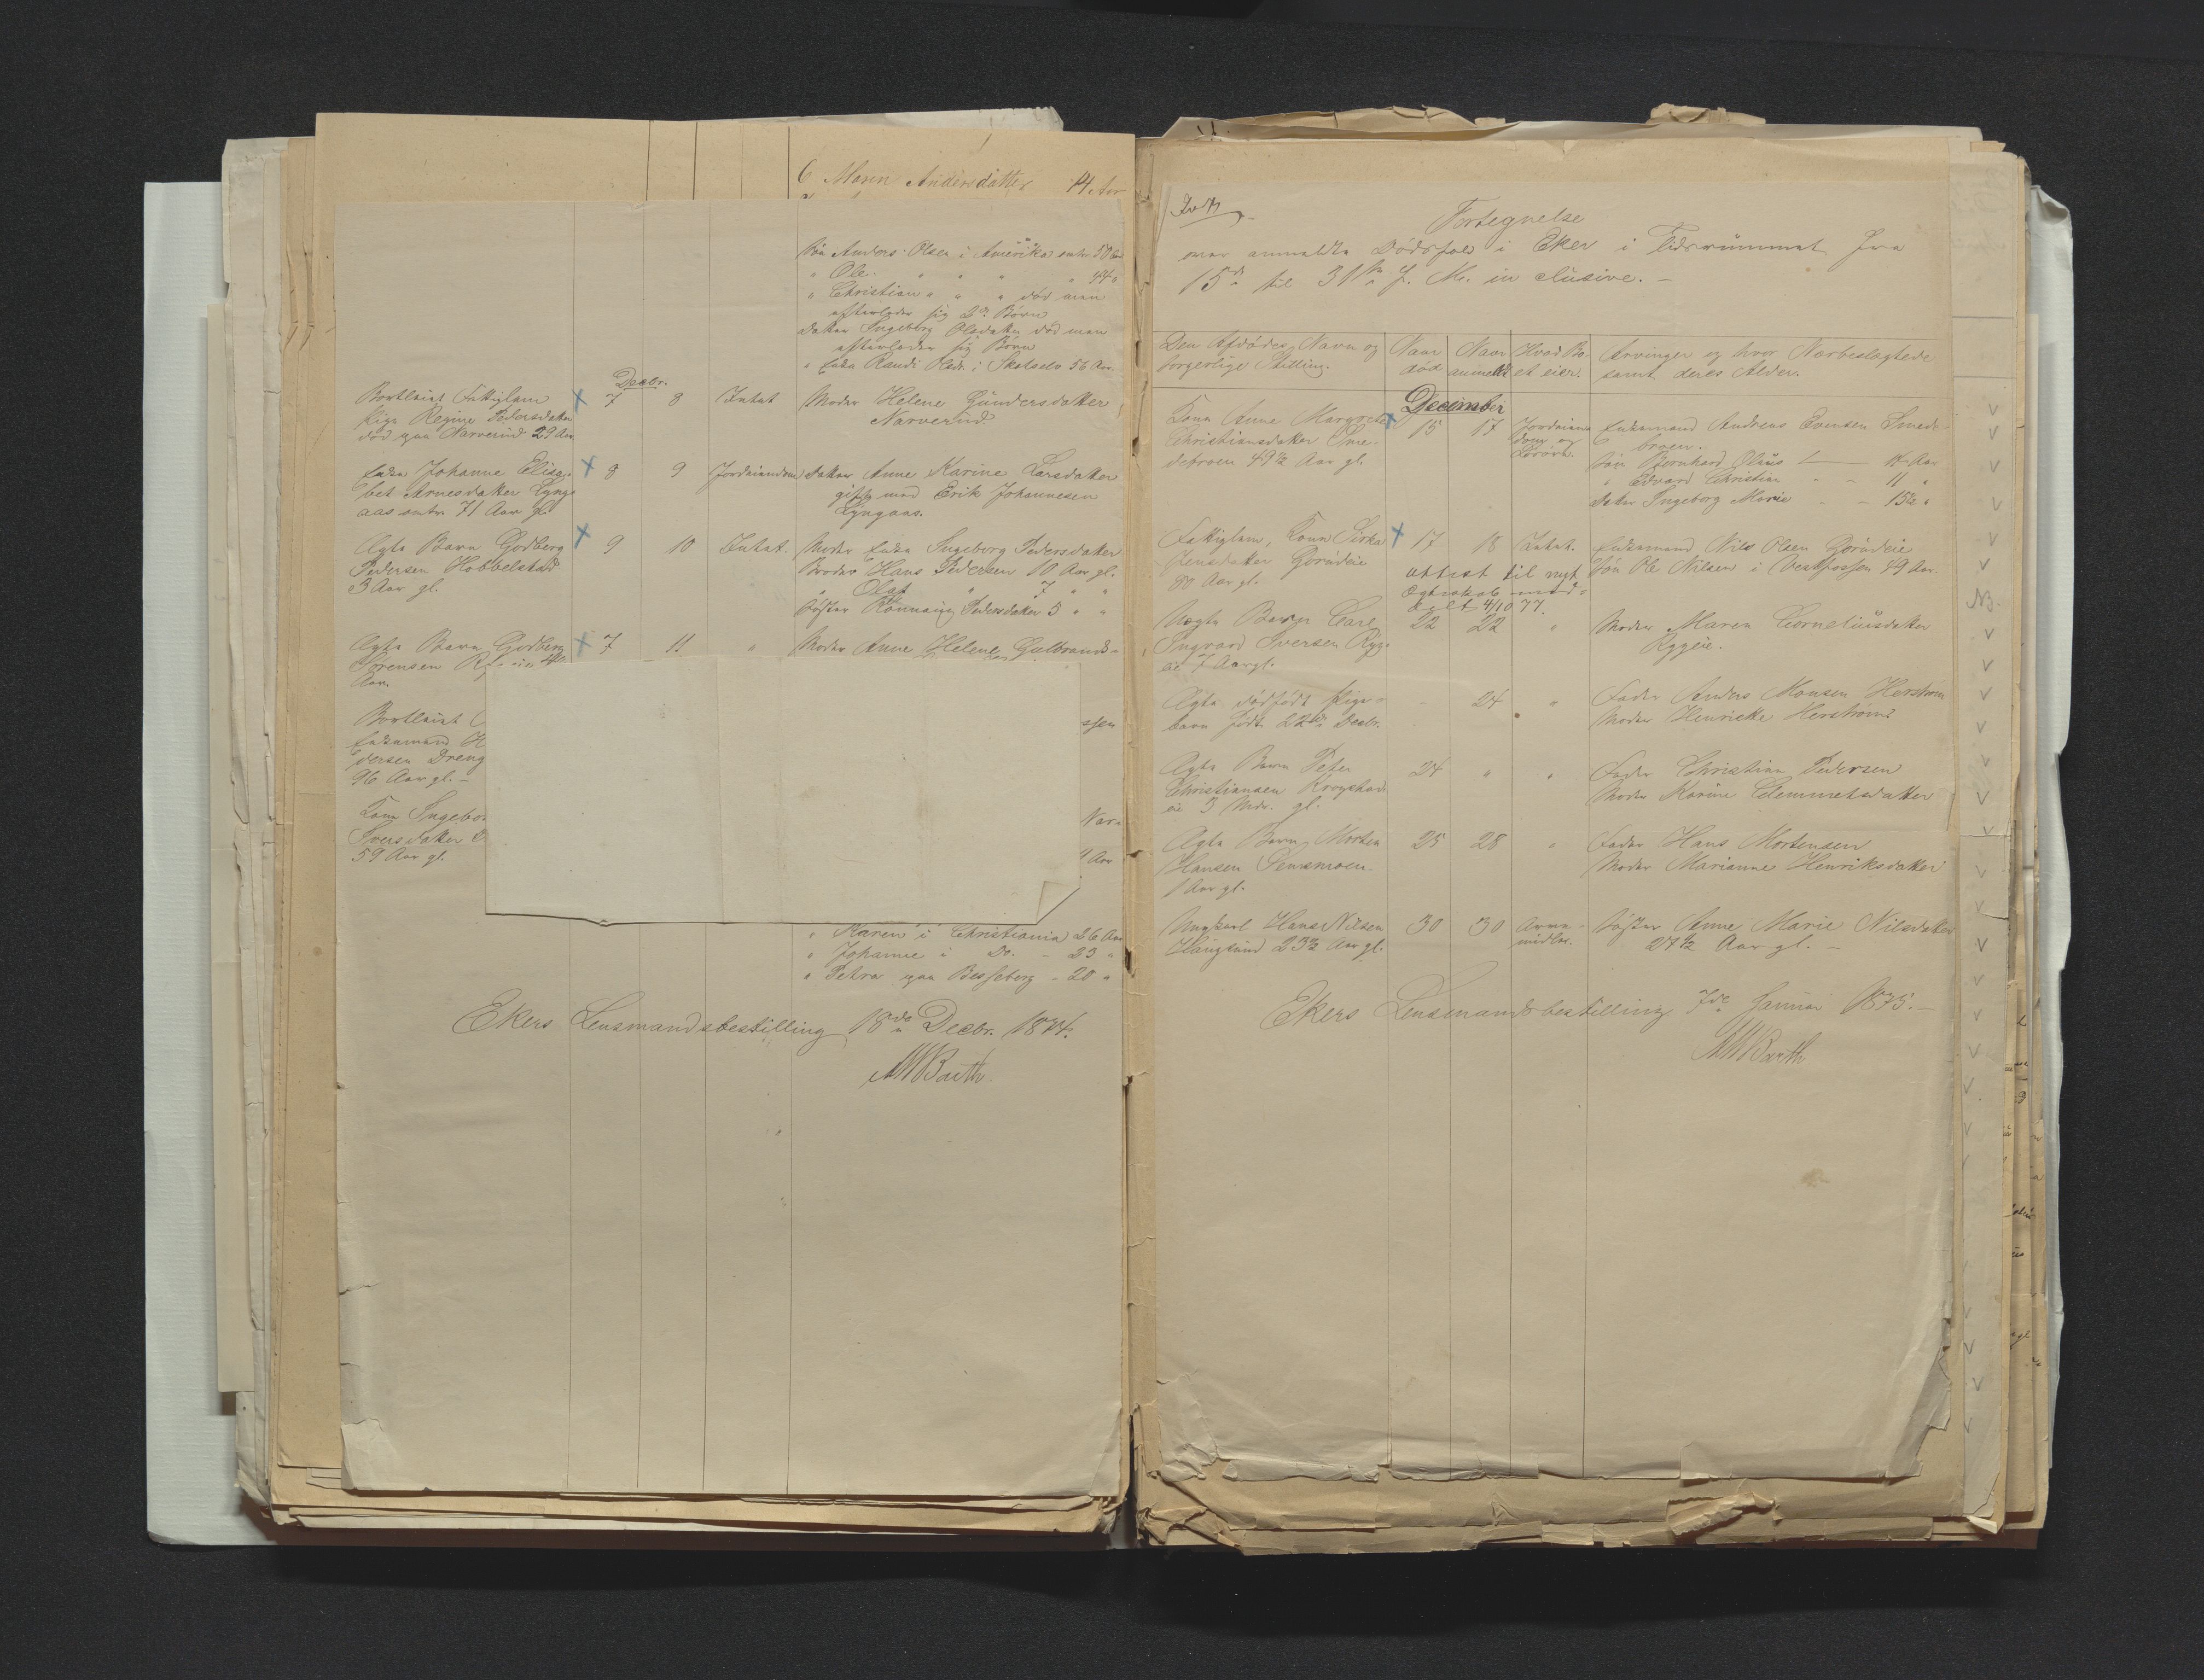 6 Maren Andersdatter 14 Aar
Søn Anders Olsen i Amerika omtr. 50 Aar
" Ole " " " " 44 "
" Christian " " " død men
efterlader sig 2de Børn
Datter Ingeborg Olsdatter død men
efterlader sig Børn
" Enke Randi Olsdr. i Skotselv 56 Aar.
Decbr.
Bortleiet Fattiglem x 7 8 Intet Moder Helene Gundersdatter
Pige Regine Pedersdatter Narverud
død paa Narverud 29 Aar
Enke Johanne Elisa- x 8 9 Jordeiendom Datter Anne Karine Larsdatter
bet Arnesdatter Lyng- gift med Erik Johannesen
aas omtr. 71 Aar gl. Lyngaas.
Ægte Barn Godberg x 9 10 Intet. Moder Enke Ingeborg Pedersdatter
Pedersen Hobbelstad Broder Hans Pedersen 10 Aar gl.
3 Aar gl. " Olaf " 7 " "
Søster Rønnaug Pedersdatter 5 " "
Ægte Barn Godberg x 7 11 " Moder Anne Helene Gulbrands-
Sørensen
Aar.
Bortleiet ssen
Enkemand H
dersen Dreng
96 Aar gl. –
Kone Ingebor Nar
Iversdatter
59 Aar gl. 4 Aar
" Karen i Christiania 26 Aar
" Johanne i Do. – 23 "
" Petra paa Besseberg – 20 "
Ekers Lensmandsbestilling 18de Decbr. 1874.
MWBarth
Fortegnelse
over anmeldte Dødsfald i Eker i Tidsrummet fra
15de til 31te f. M. inclusive. –
Den Afdødes Navn og Naar Naar Hvad Bo- Arvinger og hvor Nærbeslægtede
borgerlige Stilling. død anmeldt et eier. samt deres Alder.
December
Kone Anne Margrethe x 15 17 Jordeien- Enkemand Andreas Evensen Smede-
Christiansdatter Sme- dom og broen.
debroen 49½ Aar gl. Løsøre. Søn Bernhard Olaus – 14 Aar
" Edvard Christian " – 11 "
Datter Ingeborg Marie " – 15½ "
Fattiglem, Kone Sirke x 17 18 Intet. Enkemand Nils Olsen Gorudeie
Jensdatter Gorudeie Søn Ole Nilsen i Vestfossen 49 Aar.
80 Aar gl.
attest til nyt
Ægteskab med-
delt 4/10 77.
Uægte Barn Carl 22 22 " Moder Maren Corneliusdatter
Ingvard Iversen Ryg- Ryggeie.
eie 7 Aar gl.
Ægte dødfødt Pige- – 24 " Fader Anders Monsen Herstrøm
barn født 22de Decbr. Moder Henriette Herstrøm
Ægte Barn Peter 24 " " Fader Christian Pedersen
Christiansen Krogstad- Moder Karine Clemmetsdatter
eie 3 Mdr. gl.
Ægte Barn Morten 25 28 " Fader Hans Mortensen
Hansen Semsmoen Moder Marianne Henriksdatter
1 Aar gl.
Ungkarl Hans Nilsen 30 30 Arve- Søster Anne Marie Nilsdatter
Haugsund 23½ Aar gl. midler. 27½ Aar gl. –
Ekers Lensmandsbestilling 7de Januar 1875. –
MWBarth
NB.